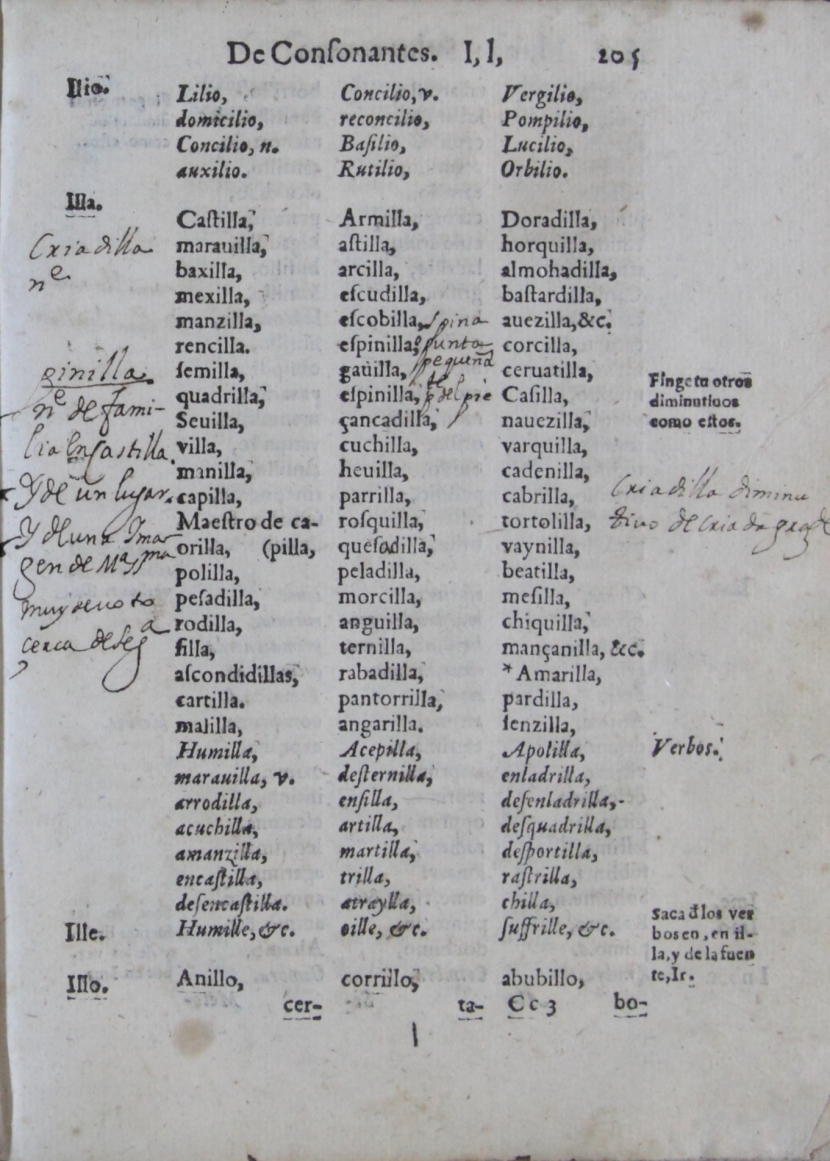 De Conſonantes. I, l, 205
Ilio. Lilio, Concilio, v. Vergilio,
domicilio, reconcilio, Pompilio,
Concilio, n. Baſilio, Lucilio,
auxilio. Rutilio, Orbilio.
Illa.
Caſtilla, Armilla, Doradilla,
Criadilla marauilla, aſtilla, horquilla,
nᵉ baxilla, arcilla, almohadilla,
mexilla, eſcudilla, baſtardilla,
manzilla, eſcobilla, spina auezilla, &c.
rencilla. eſpinilla, punta corcilla,
pinilla ſemilla, gauilla, pequeña ceruatilla, Finge tu otros
nᵉ de fami- quadrilla, eſpinilla, del pie Caſilla, diminutiuos
Seuilla, çancadilla, nauezilla, como eſtos.
lia En Castilla. villa, cuchilla, varquilla,
manilla, heuilla, cadenilla,
Y de un lugar. capilla, parrilla, cabrilla, Criadilla diminu
Maeſtro de ca- roſquilla, tortolilla, tivo de Criada
Y de una Ima- orilla, (pilla, queſadilla, vaynilla,
gen de Mª SSma polilla, peladilla, beatilla,
muy devota peſadilla, morcilla, meſilla,
rodilla, anguilla, chiquilla,
cerca de Segª ſilla, ternilla, mançanilla, &c.
aſcondidillas, rabadilla, * Amarilla,
cartilla. pantorrilla, pardilla,
malilla, angarilla. ſenzilla,
Humilla, Acepilla, Apolilla, Verbos.
marauilla, v. deſternilla, enladrilla,
arrodilla, enſilla, deſenladrilla,
acuchilla, artilla, deſquadrilla,
amanzilla, martilla, deſportilla,
encaſtilla, trilla, raſtrilla,
deſencaſtilla. atraylla, chilla,
Ille. Humille, &c. oille, &c. ſuffrille, &c. Saca dlos ver
bos en, en il-
la, y de la fuen
te, Ir.
Illo. Anillo, corrillo, abubillo,
cer- ta- Cc 3 bo-